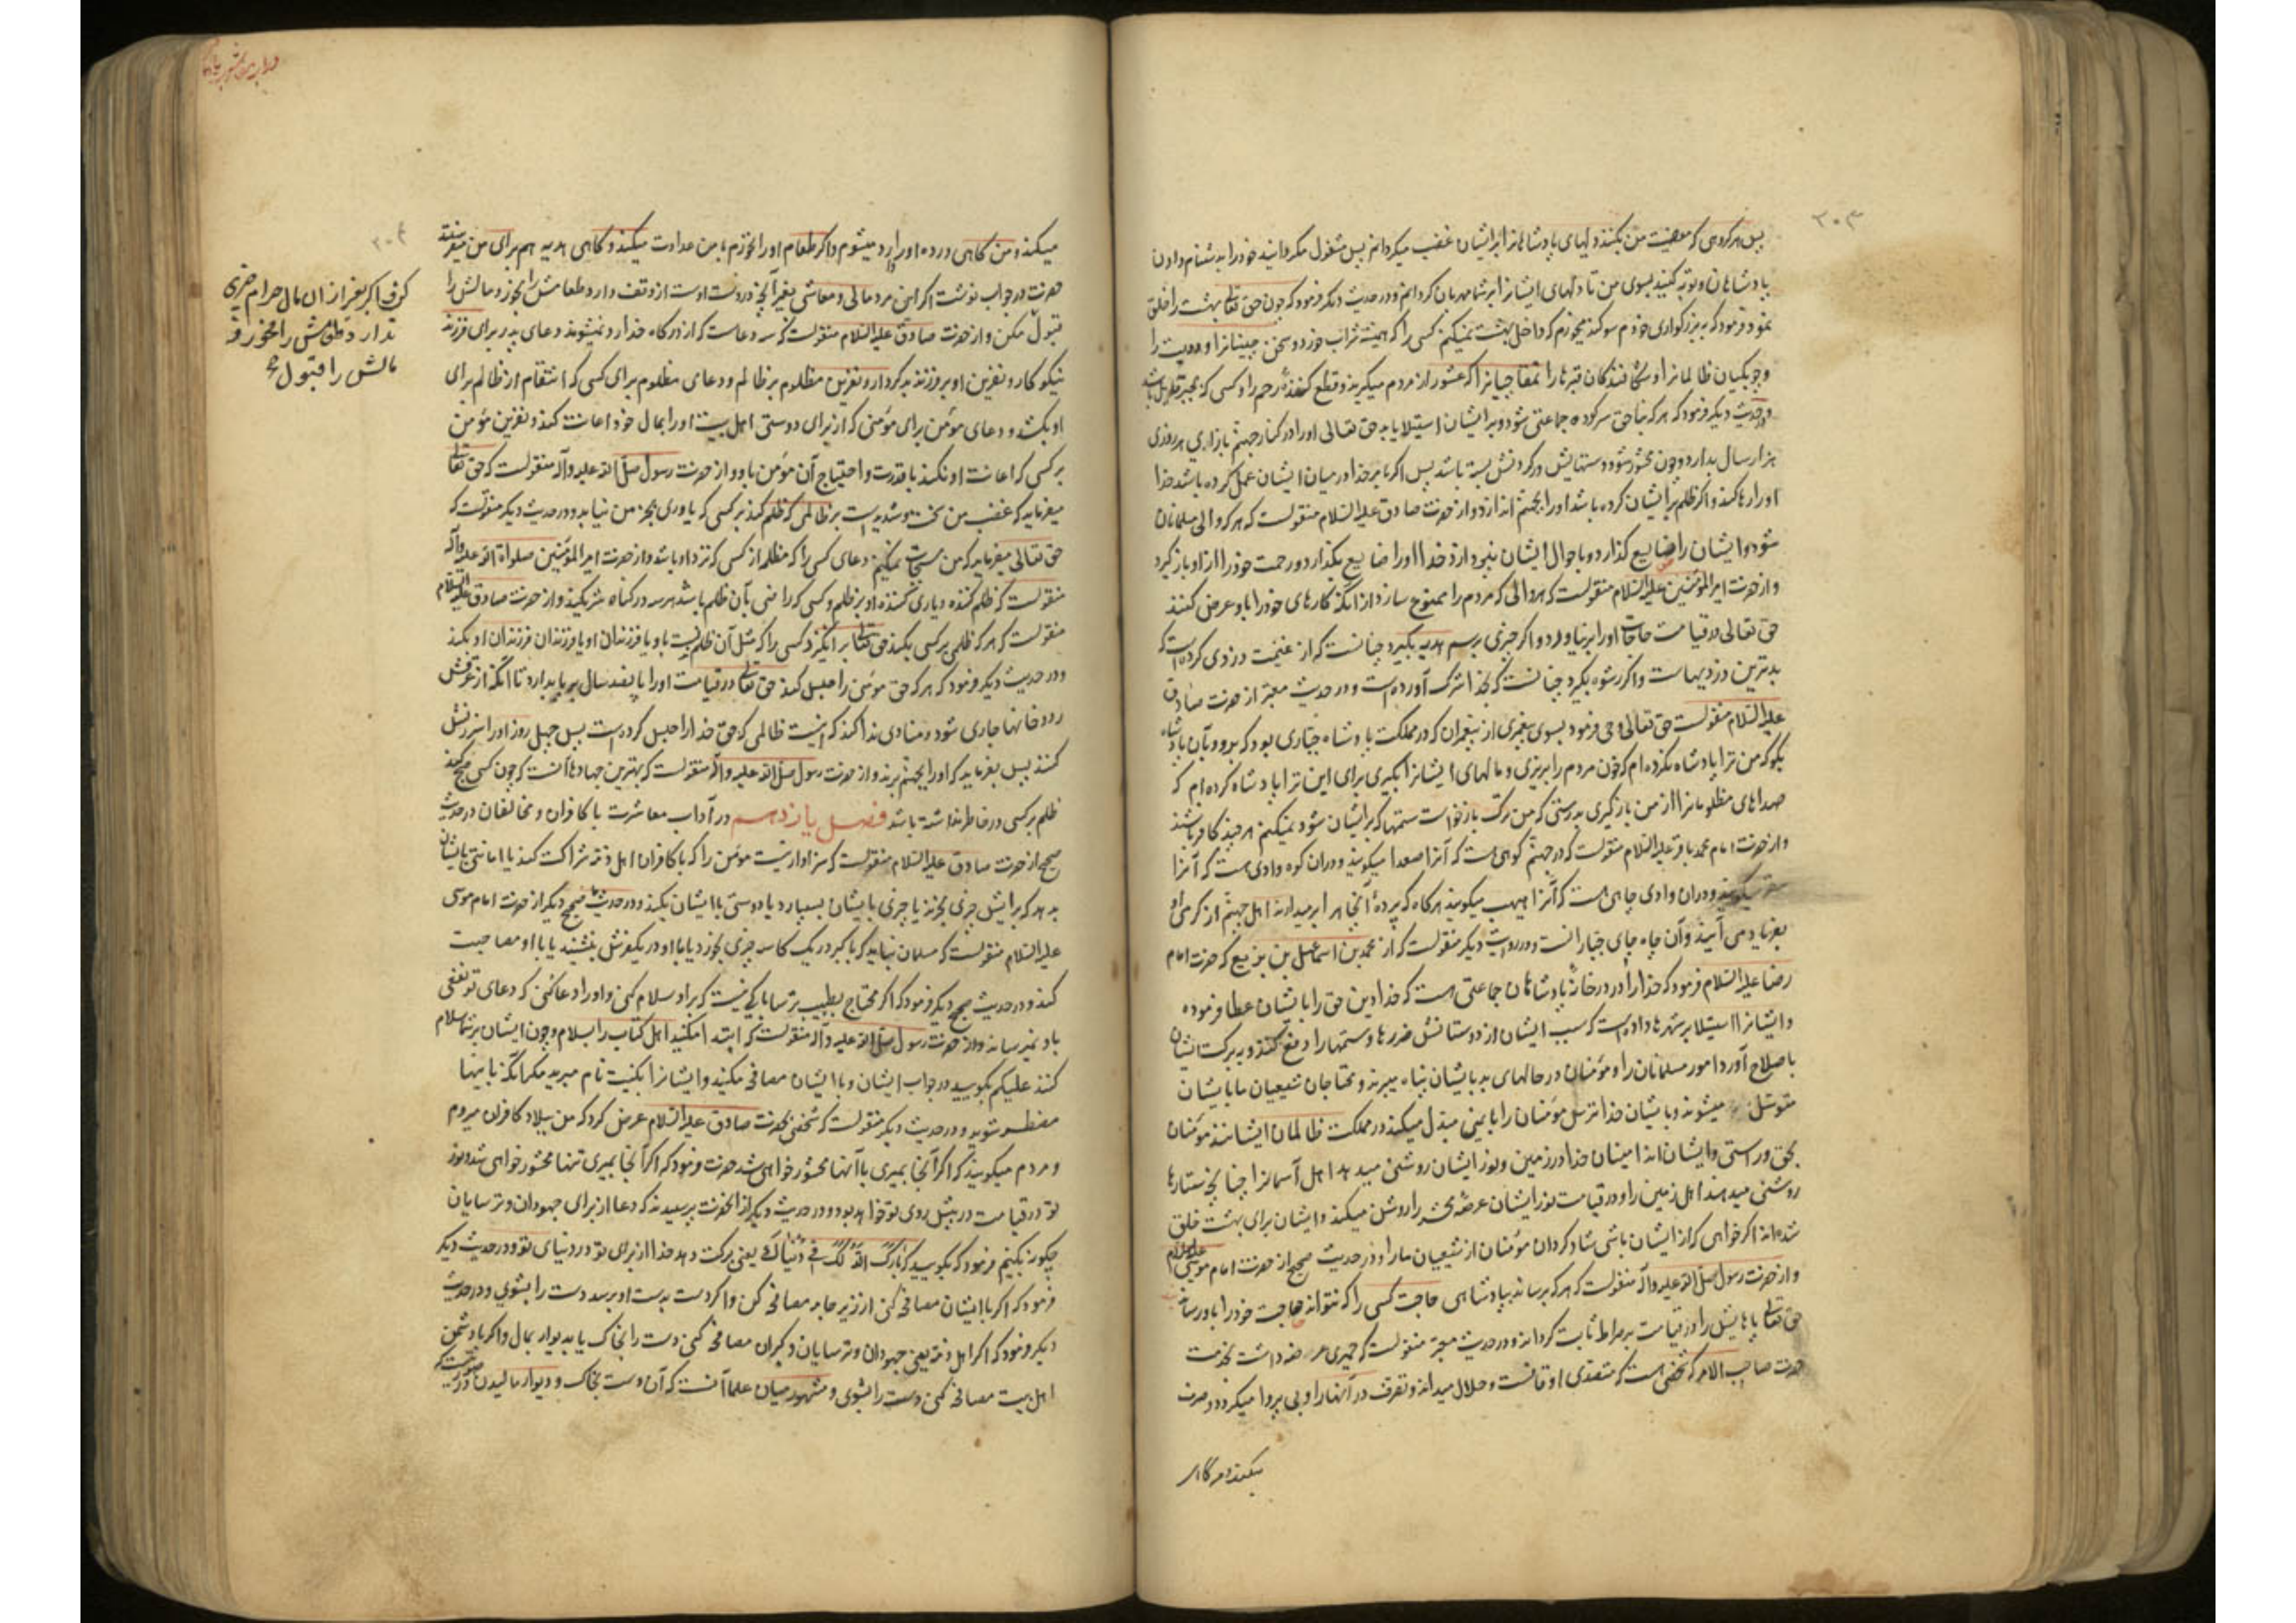 ۲۰۳
پس هر گروهی که معصیت من بکنند دلهای پادشاهانرا بر ایشان غضب میکردانم پس مشغول مکردانید خود را بدشنام دادن
پادشاهان و توبه کنید بسوی من تا دلهای ایشانرا بر شما مهربان کردانم و در حدیث دیکر فرمود که چون حق تعالی بهشت را خلق
نمود فرمود که به بزرکواری خودم سوکند میخورم که داخل بهشت نمیکنم کسی را که همیشه شراب خورد و سخن چینانرا و دیوث را
و چوبکیان ظالمانرا و شکافندکان قبرها را عشور از مردم میکیرند و قطع کنندهٔ رحم را و کسی که بجبر قایل باشد
و در حدیث دیکر فرمود که هر که بناحق سرکرده جماعتی شود و بر ایشان استیلا یابد حق تعالی او را در کنار جهنم بازای هر روزی
هزار سال بدارد و چون محشور شود دستهایش در کردنش بسته باشد پس اکر بامر خدا در میان ایشان عمل کرده باشد خدا
او را رها کند و اکر ظلم بر ایشان کرده باشد او را بجهنم اندازد و از حضرت صادق علیه السلام منقولست که هر که والی مسلمانان
شود و ایشان را ضایع کذارد و باحوال ایشان نپردازد خدا او را ضایع بکذارد و رحمت خود را از او باز کیرد
و از حضرت امیر المؤمنین علیه السلام منقولست که هر والی که مردم را ممنوع سازد از انکه کارهای خود را باو عرض کنند
حق تعالی در قیامت حاجات او را بر نیاورد و اکر چیزی برسم هدیه بکیرد چنانست که از غنیمت دزدی کرده است که
بدترین دزدیهاست و اکر رشوه بکیرد چنانست که بخدا شرک آورده است و در حدیث معتبر از حضرت صادق
علیه السلام منقولست حق تعالی وحی فرمود بسوی پیغمبری از پیغمبران که در مملکت پادشاه جباری بود که برو و بآن پادشاه
بکو که من ترا پادشاه نکرده ام که خون مردم را بریزی و مالهای ایشانرا بکیری برای این ترا پادشاه کرده ام که
صداهای مظلومانرا از من باز کیری بدرستی که من ترک بازخواست ستمها که بر ایشان شود نمیکنم هر چند کافر باشند
و از حضرت امام محمد باقر علیه السلام منقولست که در جهنم کوهی است که آنرا صعدا میکویند و در آن کوه وادی هست که آنرا
سقر میکویند و در آن وادی چاهی است که آنرا هبهب میکویند هر کاه که پردهٔ آنچاه را بر میدارند اهل جهنم از کرمی او
بفریاد می آیند و آن چاه جای جبارانست و در روایت دیکر منقولست که از محمد بن اسماعیل بن بزیع که حضرت امام
رضا علیه السلام فرمود که خدا را در در خانهٔ پادشاهان جماعتی هست که خدا دین حق را بایشان عطا فرموده
و ایشانرا استیلا بر شهرها داده است که بسبب ایشان از دوستانش ضررها و ستمها را دفع کند و به برکت ایشان
باصلاح آورد امور مسلمانان را و مؤمنان در حالهای بد بایشان پناه میبرند و محتاجان شیعیان ما بایشان
متوسل میشوند و بایشان خدا ترس مؤمنان را بایمنی مبدل میکند در مملکت ظالمان ایشانند مؤمنان
بحق و راستی و ایشان اند امینان خدا در زمین و نور ایشان روشنی میدهد اهل آسمانرا چنانچه ستارها
روشنی میدهند اهل زمین را و در قیامت نور ایشان عرصهٔ محشر را روشن میکند و ایشان برای بهشت خلق
شده اند اکر خواهی که از ایشان باشی شاد کردان مؤمنان از شیعیان ما را و در حدیث صحیح از حضرت امام موسی علیه السلام
و از حضرت رسول صلی الله علیه وآله منقولست که هر که برساند بپادشاهی حاجت کسی را که نتواند حاجت خود را باو رساند
حق تعالی پاهایش را در قیامت بر صراط ثابت کرداند و در حدیث معتبر منقولست که حمیری عرضه داشت بخدمت
حضرت صاحب الامر که شخصی است که متصدی اوقافست و حلال میداند و تصرف در آنها را و بی پروا میکردد و صرف
میکند و من کاهی
۲۰۴
میکند و من کاهی در ده او وارد میشوم و اکر طعام او را نخورم با من عداوت میکند و کاهی هدیه هم برای من میفرستد
حضرت در جواب نوشت اکر این مرد مالی و معاشی بغیر آنچه در دست اوست از وقف دارد طعامش را بخور و مالش را
قبول مکن و از حضرت صادق علیه السلام منقولست که سه دعاست که از درکاه خدا رد نمیشوند دعای پدر برای فرزند
نیکوکار و نفرین او بر فرزند بدکردار و نفرین مظلوم بر ظالم و دعای مظلوم برای کسی که انتقام از ظالم برای
او بکشد و دعای مؤمن برای مؤمنی که از برای دوستی اهل بیت او را بمال خود اعانت کند و نفرین مؤمن
بر کسی که اعانت او نکند با قدرت و احتیاج آن مؤمن باو و از حضرت رسول صلی الله علیه وآله منقولست که حق تعالی
میفرماید که غضب من سخت و شدید است بر ظالمی که ظلم کند بر کسی که یاوری بجز من نیابد و در حدیث دیکر منقولست که
حق تعالی میفرماید که من مستجاب نمیکنم دعای کسی را که مظلمه از کسی که نزد او باشد و از حضرت امیر المؤمنین صلوات الله علیه وآله
منقولست که ظلم کننده و یاری کننده او بر ظلم و کسی که راضی بآن ظلم باشد هر سه در کناه شریکند و از حضرت صادق علیه السلام
منقولست که هر که ظلمی بر کسی بکند حق تعالی بر انکیزد کسی را که مثل آن ظلم نسبت باو یا فرزندان او یا فرزندان فرزندان او بکند
و در حدیث دیکر فرمود که هر که حق مؤمن را حبس کند حق تعالی در قیامت او را پانصد سال بر پا بدارد تا آنکه از عرقش
رودخانها جاری شود و منادی ندا کند که اینست ظالمی که حق خدا را حبس کرده است پس چهل روز او را سرزنش
کنند پس بفرماید که او را بجهنم برند و از حضرت رسول صلی الله علیه وآله منقولست که بهترین جهادها آنست که چون کسی صبح کند
ظلم بر کسی در خاطر نداشته باشد فصل یازدهم در آداب معاشرت با کافران و مخالفان در حدیث
صحیح از حضرت صادق علیه السلام منقولست که سزاوار نیست مؤمن را که با کافران اهل ذمه شراکت کند یا امانتی بایشان
بدهد که برایش چیزی بخرند یا چیزی بایشان بسپارد یا دوستی با ایشان بکند و در حدیث صحیح دیکر از حضرت امام موسی
علیه السلام منقولست که مسلمان نباید که با کبر در یک کاسه چیزی بخورد یا با او در یک فرش بنشیند یا با او مصاحبت
کند و در حدیث صحیح دیکر فرمود که اکر محتاج بطبیب ترسا باکی نیست که بر او سلام کنی و او را دعا کنی که دعای تو نفعی
باو نمیرساند و از حضرت رسول صلی الله علیه وآله منقولست که ابتدا مکنید اهل کتاب را بسلام و چون ایشان بر شما سلام
کنند علیکم بکویید در جواب ایشان و با ایشان مصافحه مکنید و ایشانرا بکنیت نام مبرید مکر آنکه باینها
مضطر شوید و در حدیث دیکر منقولست که شخصی بحضرت صادق علیه السلام عرض کرد که من ببلاد کافران میروم
و مردم میکویند که اکر آنجا بمیری با آنها محشور خواهی شد حضرت فرمود که اکر آنجا بمیری تنها محشور خواهی شد و نور
تو در قیامت در پیش روی تو خواهد بود و در حدیث دیکر از آنحضرت پرسیدند که دعا از برای جهودان و ترسایان
چکونه بکنیم فرمود که بکویید که بَارَکَ اللّهُ لَکَ فی دُنْیَاکَ یعنی برکت دهد خدا از برای تو در دنیای تو و در حدیث دیکر
فرمود که اکر با ایشان مصافحه کنی از زیر جامه مصافحه کن و اکر دست بدست او برسد دست را بشوی و در حدیث
دیکر فرمود که اکر اهل ذمه یعنی جهودان و ترسایان و کبران مصافحه کنی دست را بخاک یا بدیوار بمال و اکر با دشمن
اهل بیت مصافحه کنی دست را بشوی و مشهور میان علما آنست که آن دست بخاک و دیوار مالیدن در
اکر بغیر از ان مال حرام چیزی
ندارد طعامش را مخور و
مالش را قبول